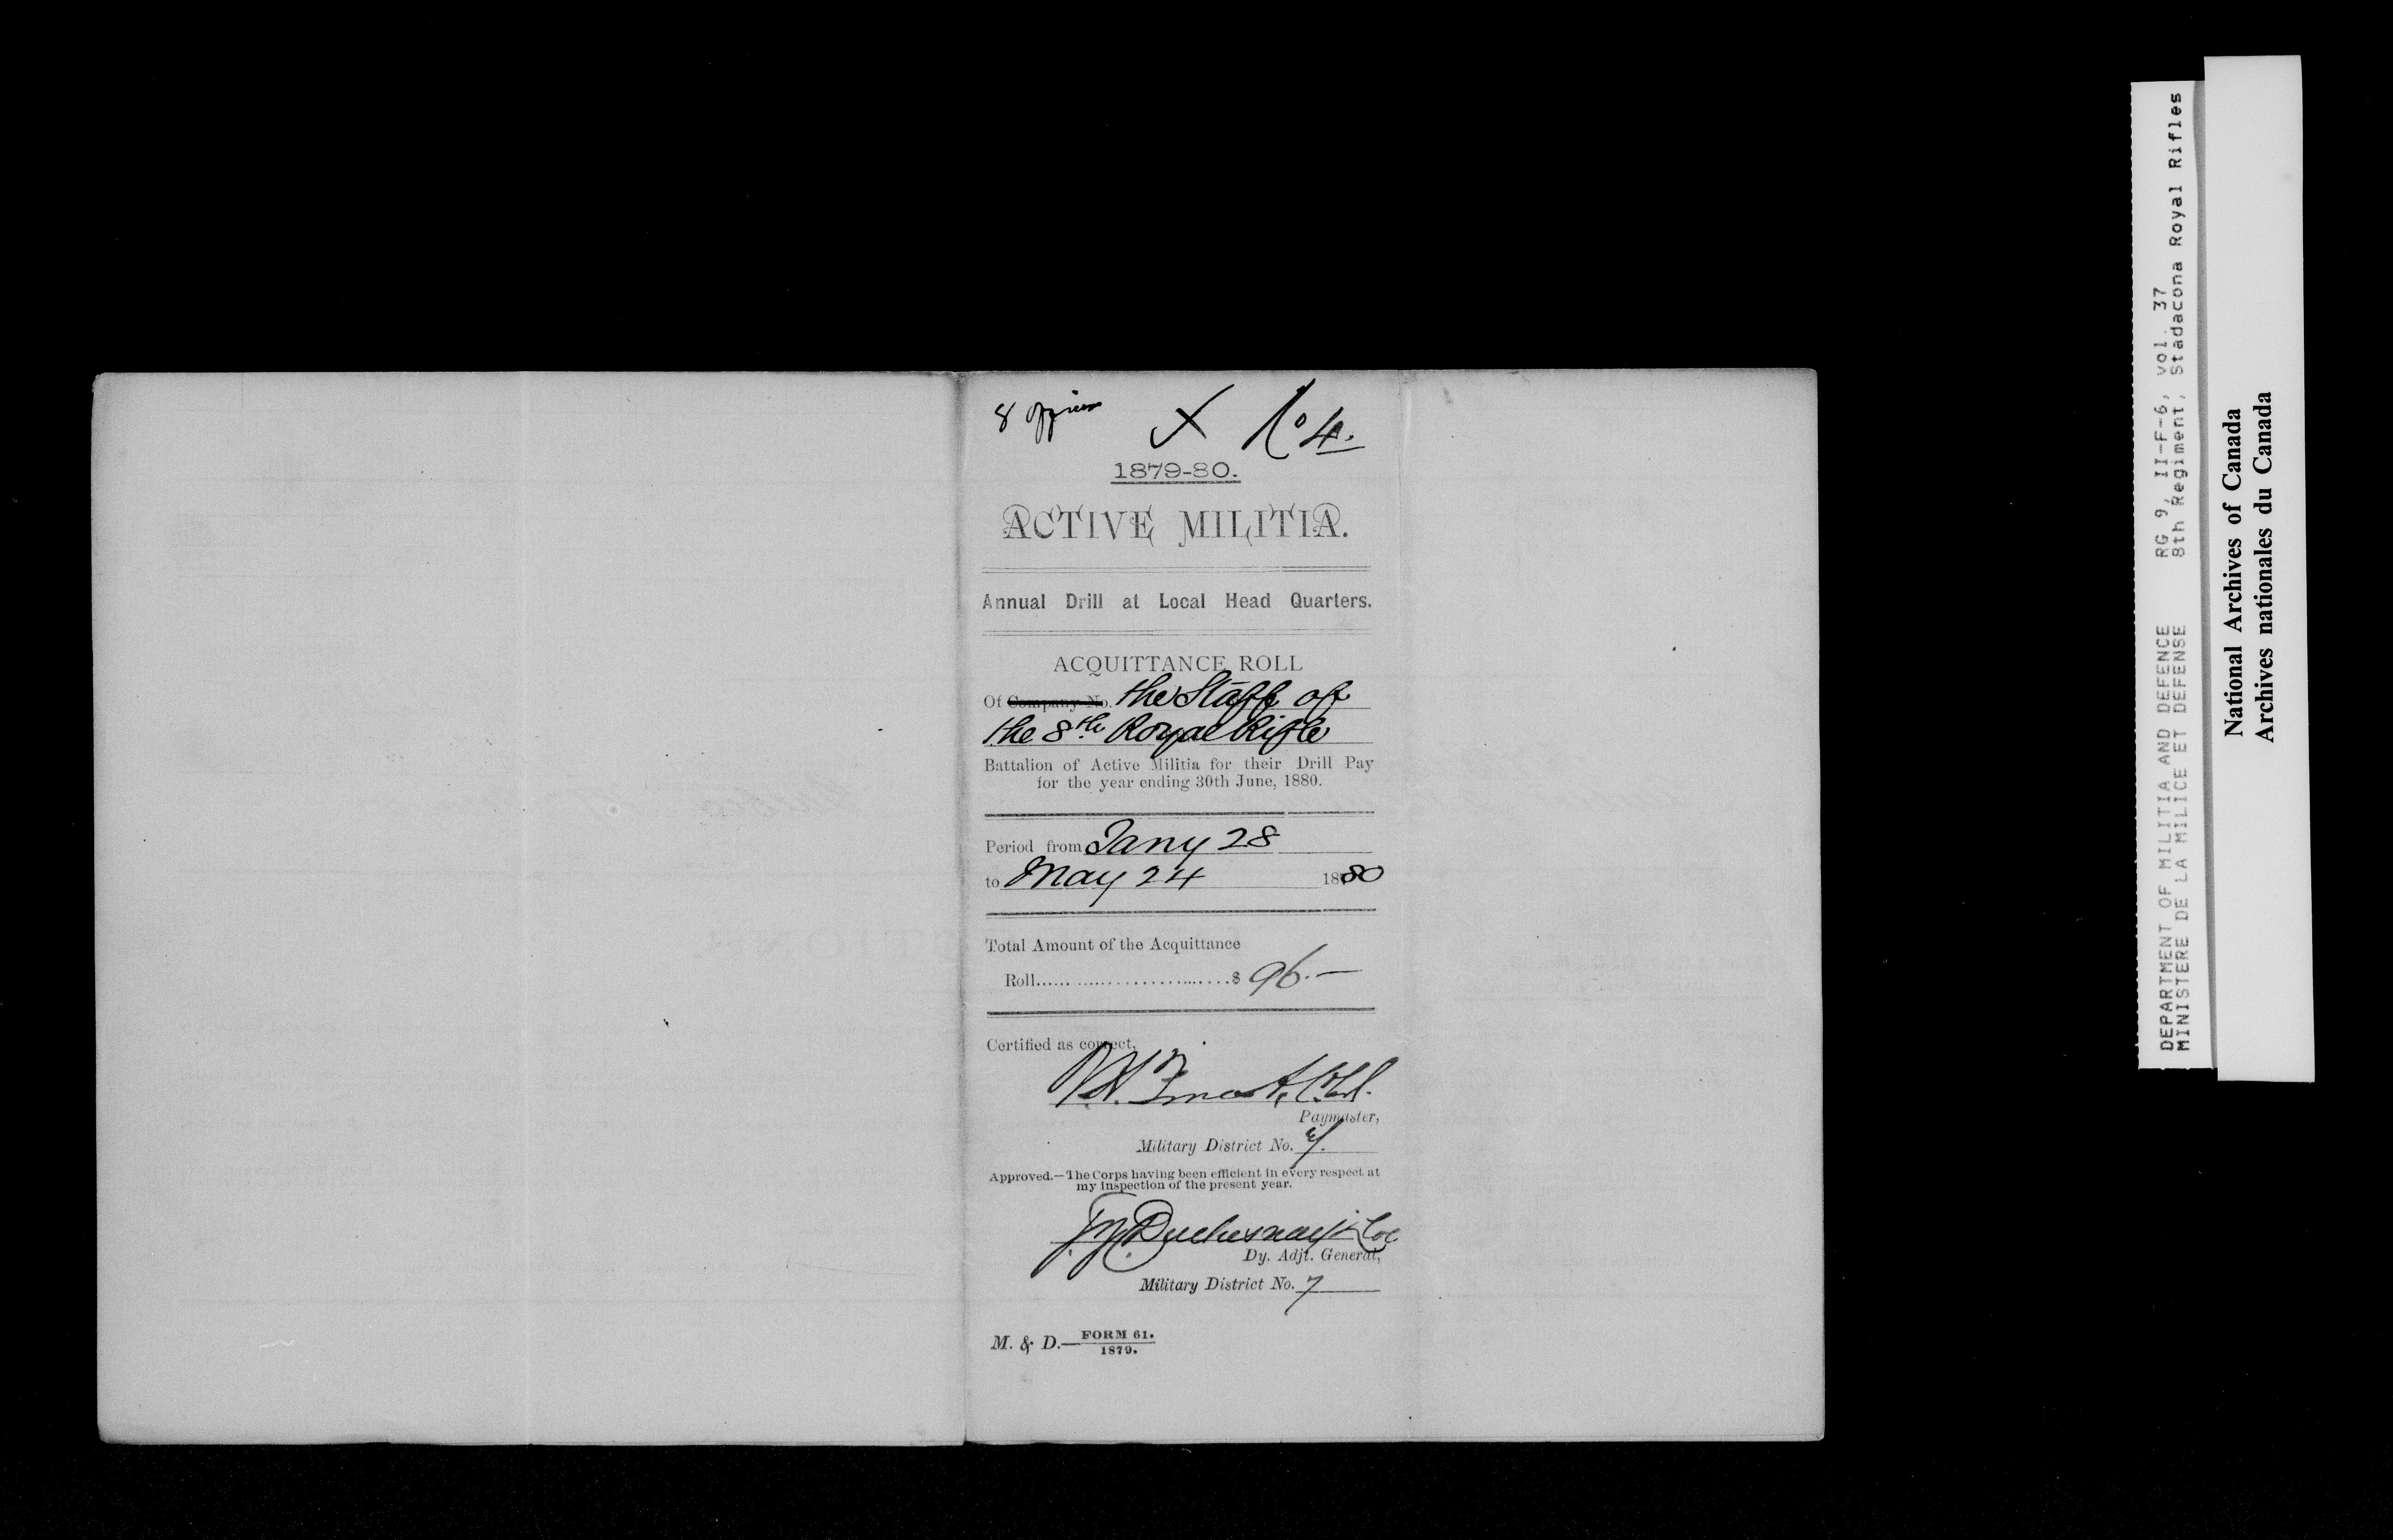 8 officers
X No 4.
1879-80.
ACTIVE MILITIA.
Annual Drill at Local Head Quarters.
ACQUITTANCE ROLL
Of Company No. the Staff of
the 8th Royal Rifle
Battalion of Active Militia for their Drill Pay
for the year ending 30th June, 1880.
Period from Jany 28
to May 24 1880
Total Amount of the Acquittance
Roll...... $ 96.—
Certified as correct,
Paymaster,
Military District No. 7.
Approved.—The Corps having been efficient in every respect at
my inspection of the present year.
Duchesnay Lt Col
Dy. Adjt. General,
Military District No. 7
M. & D.—FORM 61.
1879.
DEPARTMENT OF MILITIA AND DEFENCE RG 9, II-F-6, vol. 37
MINISTERE DE LA MILICE ET DEFENSE 8th Regiment, Stadacona Royal Rifles
National Archives of Canada
Archives nationales du Canada